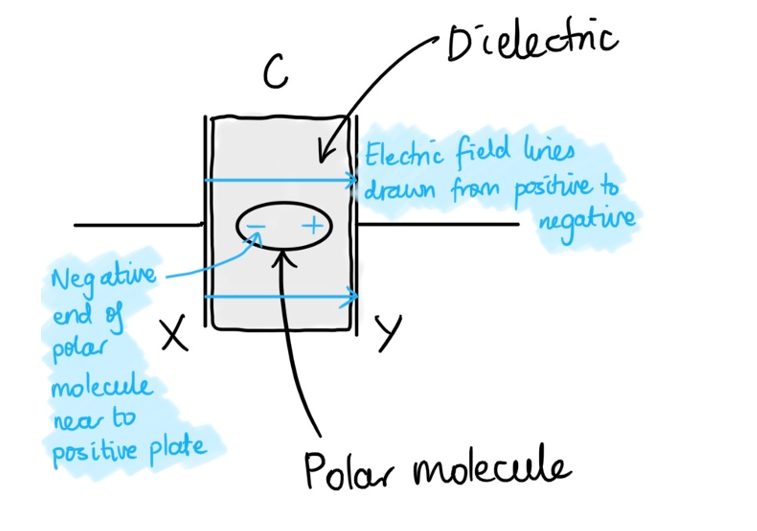 Dielectric
C
Electric field lines
drawn from positive to
negative
- +
Negative
end of
polar
molecule
near to
positive plate
X
Y
Polar molecule